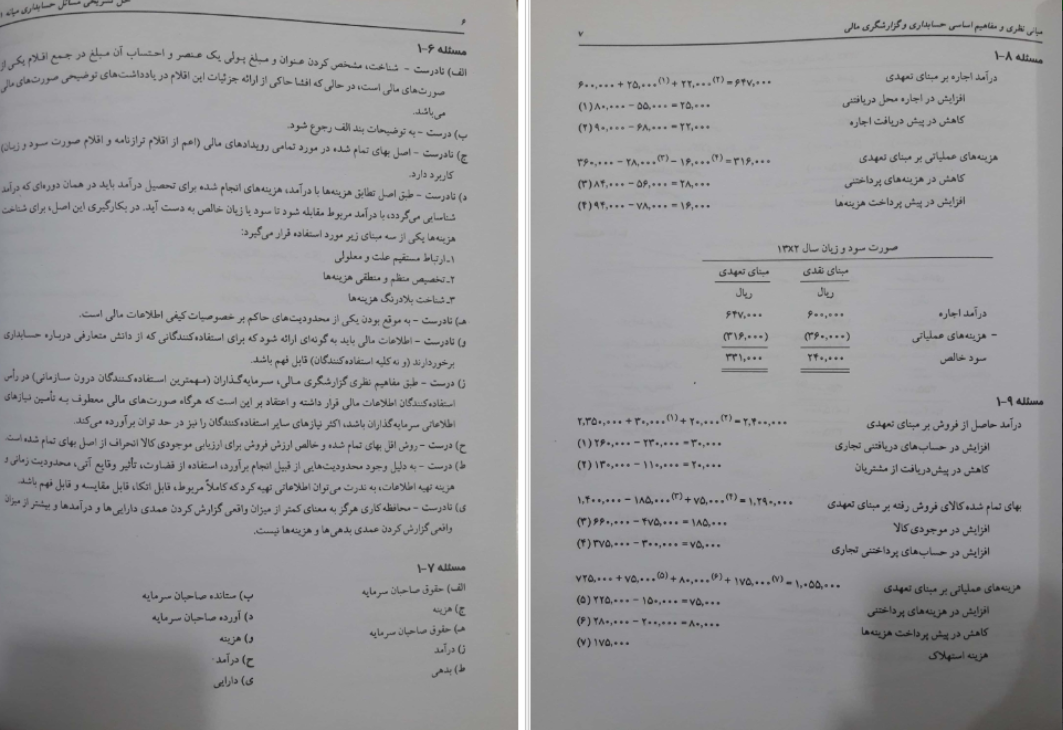 ۶
حل تشریحی مسائل حسابداری میانه ۱
مسئله ۶-۱
الف) نادرست - شناخت، مشخص کردن عنوان و مبلغ پولی یک عنصر و احتساب آن مبلغ در جمع اقلام یکی از
صورت‌های مالی است، در حالی‌که افشا حاکی از ارائه جزئیات این اقلام در یادداشت‌های توضیحی صورت‌های مالی
می‌باشد.
ب) درست - به توضیحات بند الف رجوع شود.
ج) نادرست - اصل بهای تمام شده در مورد تمامی رویدادهای مالی (اعم از اقلام ترازنامه و اقلام صورت سود و زیان)
کاربرد دارد.
د) نادرست - طبق اصل تطابق هزینه‌ها با درآمد، هزینه‌های انجام شده برای تحصیل درآمد باید در همان دوره‌ای که درآمد
شناسایی می‌گردد، با درآمد مربوط مقابله شود تا سود یا زیان خالص به دست آید. در بکارگیری این اصل، برای شناخت
هزینه‌ها یکی از سه مبنای زیر مورد استفاده قرار می‌گیرد:
۱ـ ارتباط مستقیم علت و معلولی
۲ـ تخصیص منظم و منطقی هزینه‌ها
۳ـ شناخت بلادرنگ هزینه‌ها
هـ) نادرست - به موقع بودن یکی از محدودیت‌های حاکم بر خصوصیات کیفی اطلاعات مالی است.
و) نادرست - اطلاعات مالی باید به گونه‌ای ارائه شود که برای استفاده‌کنندگانی که از دانش متعارفی درباره حسابداری
برخوردارند (و نه کلیه استفاده‌کنندگان) قابل فهم باشد.
ز) درست - طبق مفاهیم نظری گزارشگری مالی، سرمایه‌گذاران (مهمترین استفاده‌کنندگان درون سازمانی) در رأس
استفاده‌کنندگان اطلاعات مالی قرار داشته و اعتقاد بر این است که هرگاه صورت‌های مالی معطوف به تأمین نیازهای
اطلاعاتی سرمایه‌گذاران باشد، اکثر نیازهای سایر استفاده‌کنندگان را نیز در حد توان برآورده می‌کند.
ح) درست - روش اقل بهای تمام شده و خالص ارزش فروش برای ارزیابی موجودی کالا انحراف از اصل بهای تمام شده است.
ط) درست - به دلیل وجود محدودیت‌هایی از قبیل انجام برآورد، استفاده از قضاوت، تأثیر وقایع آتی، محدودیت زمانی و
هزینه تهیه اطلاعات، به ندرت می‌توان اطلاعاتی تهیه کرد که کاملاً مربوط، قابل اتکا، قابل مقایسه و قابل فهم باشد.
ی) نادرست - محافظه کاری هرگز به معنای کمتر از میزان واقعی گزارش کردن عمدی دارایی‌ها و درآمدها و بیشتر از میزان
واقعی گزارش کردن عمدی بدهی‌ها و هزینه‌ها نیست.
مسئله ۷-۱
الف) حقوق صاحبان سرمایه ب) ستانده صاحبان سرمایه
ج) هزینه د) آورده صاحبان سرمایه
هـ) حقوق صاحبان سرمایه و) هزینه
ز) درآمد ح) درآمد
ط) بدهی ی) دارایی
مبانی نظری و مفاهیم اساسی حسابداری و گزارشگری مالی ۷
مسئله ۸-۱
درآمد اجاره بر مبنای تعهدی ۶۰۰,۰۰۰ + ۲۵,۰۰۰(۱) + ۲۲,۰۰۰(۲) = ۶۴۷,۰۰۰
افزایش در اجاره محل دریافتنی (۱) ۸۰,۰۰۰ − ۵۵,۰۰۰ = ۲۵,۰۰۰
کاهش در پیش دریافت اجاره (۲) ۹۰,۰۰۰ − ۶۸,۰۰۰ = ۲۲,۰۰۰
هزینه‌های عملیاتی بر مبنای تعهدی ۳۶۰,۰۰۰ − ۲۸,۰۰۰(۳) − ۱۶,۰۰۰(۴) = ۳۱۶,۰۰۰
کاهش در هزینه‌های پرداختنی (۳) ۸۴,۰۰۰ − ۵۶,۰۰۰ = ۲۸,۰۰۰
افزایش در پیش پرداخت هزینه‌ها (۴) ۹۴,۰۰۰ − ۷۸,۰۰۰ = ۱۶,۰۰۰
صورت سود و زیان سال ۱۳X۲
مبنای نقدی مبنای تعهدی
ریال ریال
درآمد اجاره ۶۰۰,۰۰۰ ۶۴۷,۰۰۰
- هزینه‌های عملیاتی (۳۶۰,۰۰۰) (۳۱۶,۰۰۰)
سود خالص ۲۴۰,۰۰۰ ۳۳۱,۰۰۰
مسئله ۹-۱
درآمد حاصل از فروش بر مبنای تعهدی ۲,۳۵۰,۰۰۰ + ۳۰,۰۰۰(۱) + ۲۰,۰۰۰(۲) = ۲,۴۰۰,۰۰۰
افزایش در حساب‌های دریافتنی تجاری (۱) ۲۶۰,۰۰۰ − ۲۳۰,۰۰۰ = ۳۰,۰۰۰
کاهش در پیش‌دریافت از مشتریان (۲) ۱۳۰,۰۰۰ − ۱۱۰,۰۰۰ = ۲۰,۰۰۰
بهای تمام شده کالای فروش رفته بر مبنای تعهدی ۱,۴۰۰,۰۰۰ − ۱۸۵,۰۰۰(۳) + ۷۵,۰۰۰(۴) = ۱,۲۹۰,۰۰۰
افزایش در موجودی کالا (۳) ۶۶۰,۰۰۰ − ۴۷۵,۰۰۰ = ۱۸۵,۰۰۰
افزایش در حساب‌های پرداختنی تجاری (۴) ۳۷۵,۰۰۰ − ۳۰۰,۰۰۰ = ۷۵,۰۰۰
هزینه‌های عملیاتی بر مبنای تعهدی ۷۲۵,۰۰۰ + ۷۵,۰۰۰(۵) + ۸۰,۰۰۰(۶) + ۱۷۵,۰۰۰(۷) = ۱,۰۵۵,۰۰۰
افزایش در هزینه‌های پرداختنی (۵) ۲۲۵,۰۰۰ − ۱۵۰,۰۰۰ = ۷۵,۰۰۰
کاهش در پیش پرداخت هزینه‌ها (۶) ۲۸۰,۰۰۰ − ۲۰۰,۰۰۰ = ۸۰,۰۰۰
هزینه استهلاک (۷) ۱۷۵,۰۰۰